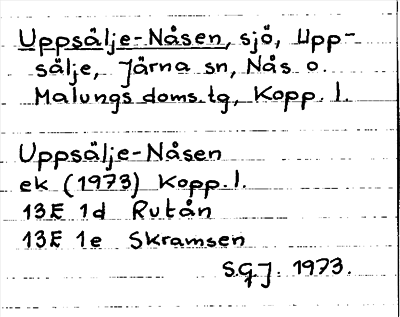 Uppsälje-Nåsen, sjö, Upp-
sälje, Järna sn, Nås o.
Malungs doms.tg, Kopp. l.
Uppsälje-Nåsen
ek (1973) Kopp.l.
13E 1d Rutån
13E 1e Skramsen
S.G.J. 1973.